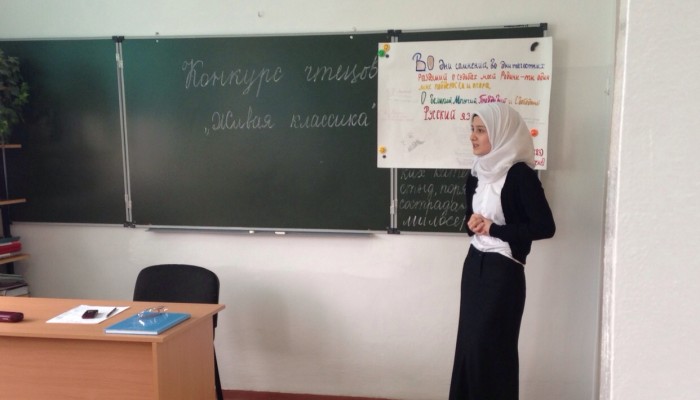 Конкурс чтецов
„Живая классика"
Во дни сомнений, во дни тягостных
раздумий о судьбах моей Родины - ты один
мне поддержка и опора,
О Великий, Могучий, Правдивый и Свободный
Русский
сострадан
милосер